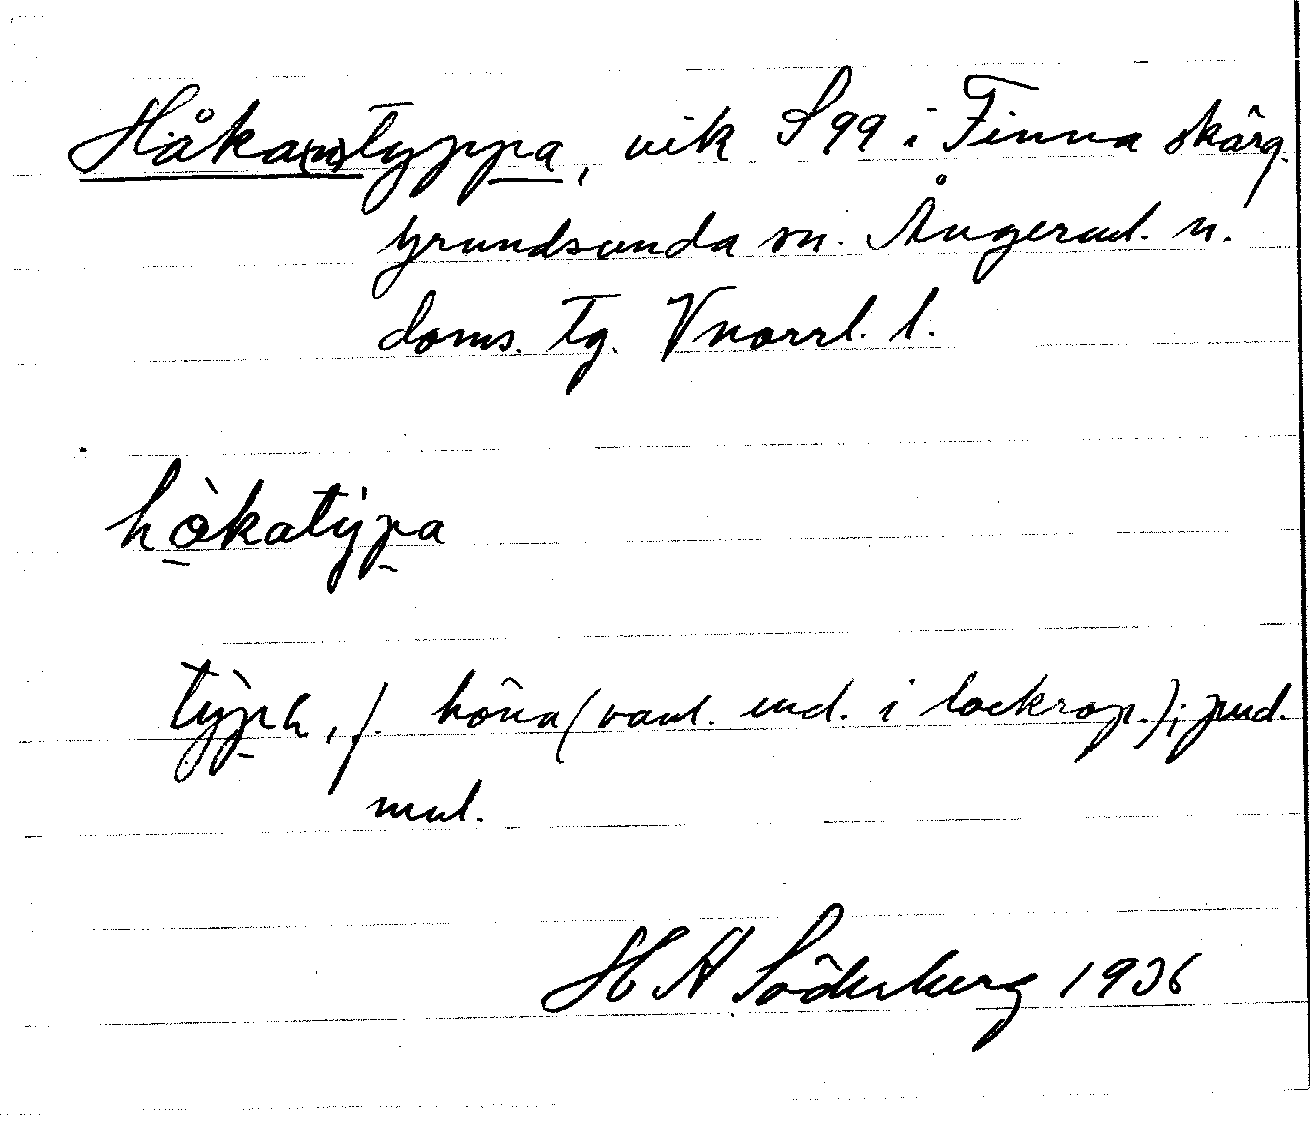 Håka(n)typpa, vik S 99 i Finna skärg.
Grundsunda sn. Ångerml. n.
doms. tg. Vnorrl. l.
hå̀katỳpa
tỳpa, f. höna (vanl. end. i lockrop.); pud.
mul.
H A Söderberg 1936